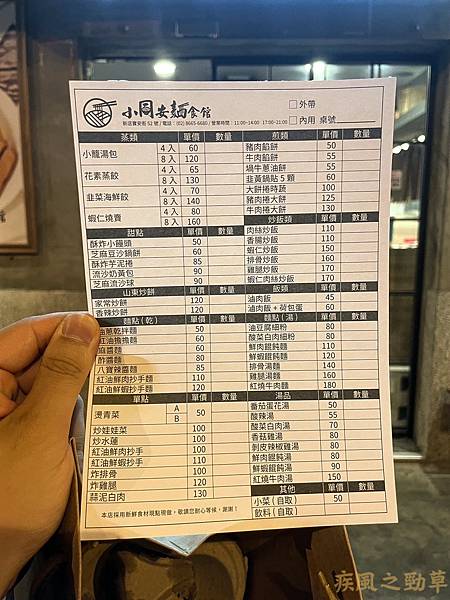 小同安麵食館
新店寶安街52號/電話：(02) 8665-6680/營業時間：11:00-14:00 17:00-21:00
□外帶
□內用 桌號
蒸類 單價 數量
小籠湯包 4入 60
8入 120
花素蒸餃 4入 65
8入 130
韭菜海鮮餃 4入 70
8入 140
蝦仁燒賣 4入 80
8入 160
甜點 單價 數量
酥炸小饅頭 50
芝麻豆沙鍋餅 60
酥炸芋泥捲 85
流沙奶黃包 90
芝麻流沙球 90
山東炒餅 單價 數量
家常炒餅 120
香辣炒餅 120
麵點(乾) 單價 數量
油蔥乾拌麵 50
紅油擔擔麵 60
麻醬麵 60
酢醬麵 80
八寶辣醬麵 85
紅油鮮肉抄手麵 110
紅油鮮蝦抄手麵 120
單點 單價 數量
燙青菜 A 50
B
炒娃娃菜 100
炒水蓮 100
紅油鮮肉抄手 100
紅油鮮蝦抄手 110
炸排骨 100
炸雞腿 120
蒜泥白肉 130
本店採用新鮮食材現點現做，敬請您耐心等候，謝謝！
煎類 單價 數量
豬肉餡餅 50
牛肉餡餅 55
蝸牛蔥油餅 55
韭黃鍋貼5顆 60
大餅捲時蔬 100
豬肉捲大餅 125
牛肉捲大餅 130
炒飯類 單價 數量
肉絲炒飯 110
香腸炒飯 110
蝦仁炒飯 150
排骨炒飯 160
雞腿炒飯 170
蝦仁肉絲炒飯 170
飯類 單價 數量
滷肉飯 45
滷肉飯+荷包蛋 60
麵點(湯) 單價 數量
油豆腐細粉 80
酸菜白肉細粉 80
鮮肉餛飩麵 110
鮮蝦餛飩麵 120
排骨湯麵 140
雞腿湯麵 160
紅燒牛肉麵 180
湯品 單價 數量
番茄蛋花湯 50
酸辣湯 55
酸菜白肉湯 70
香菇雞湯 80
剝皮辣椒雞湯 80
鮮肉餛飩湯 80
鮮蝦餛飩湯 90
紅燒牛肉湯 150
其他 單價 數量
小菜(自取) 50
飲料(自取)
疾風之勁草